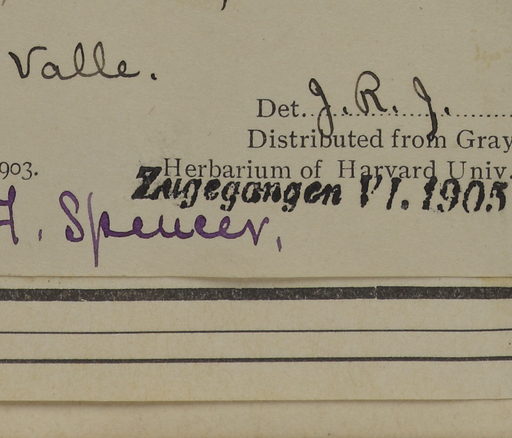 Valle.
Det. J. R. J.
Distributed from Gray
903. Herbarium of Harvard Univ.
Zugegangen VI. 1905
Spencer,